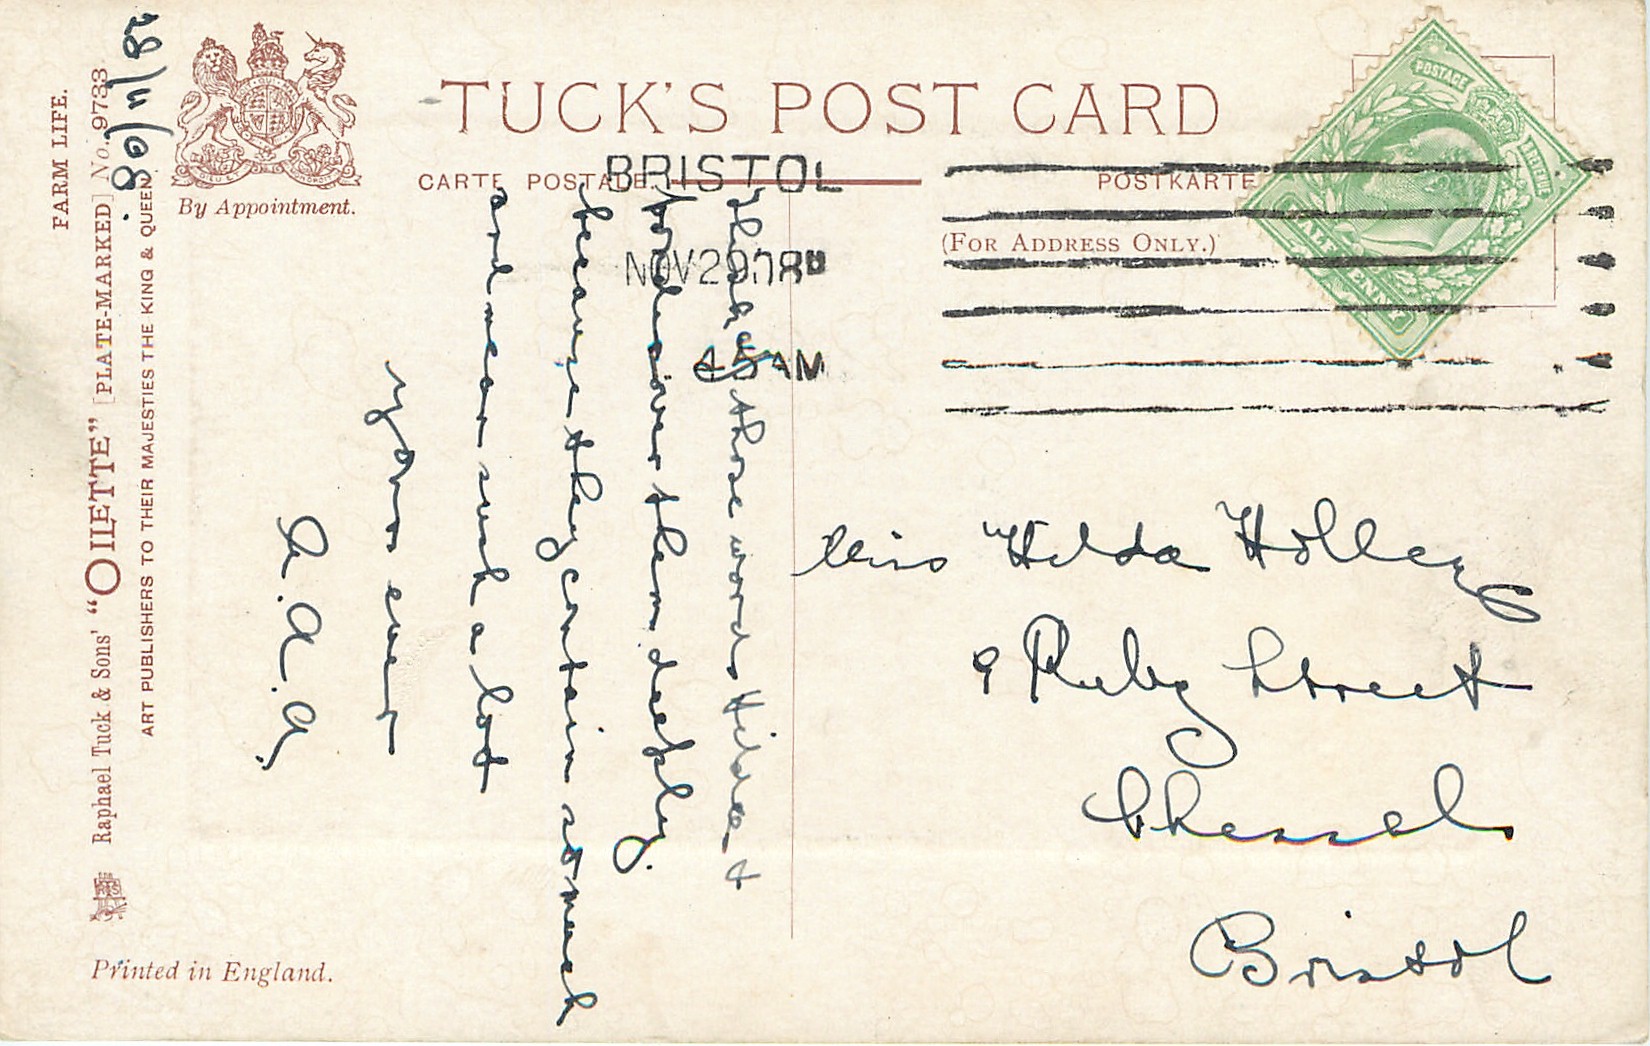 TUCK'S POST CARD
CARTE POSTALE.
POSTKARTE
(FOR ADDRESS ONLY.)
BRISTOL
NOV 29 08
45 AM
POSTAGE
REVENUE
HALFPENNY
By Appointment.
FARM LIFE.
Raphael Tuck & Sons' "OILETTE" [PLATE-MARKED] No. 9733
ART PUBLISHERS TO THEIR MAJESTIES THE KING & QUEEN.
Printed in England.
28/11/08.
those words Hilda &
ponder over them deeply.
because they contain so much
and mean such a lot
yours ever
A. A.
Miss Hilda Holley
9 Ruby Street
Chessel
Bristol